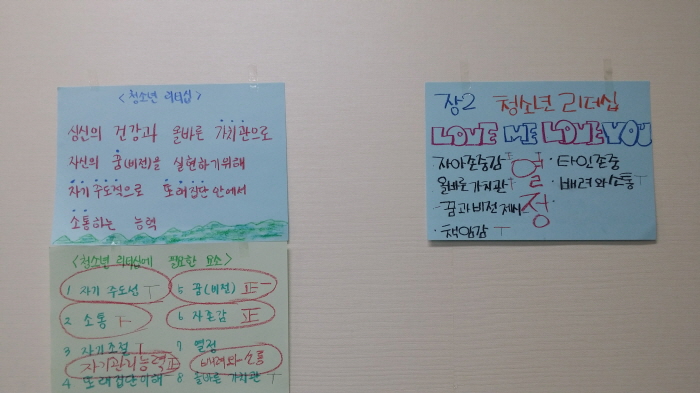 <청소년 리더십>
심신의 건강과 올바른 가치관으로
자신의 꿈(비전)을 실현하기위해
자기 주도적으로 또래집단 안에서
소통하는 능력
<청소년 리더십에 필요한 요소>
1 자기 주도성 ㅜ
2 소통 ㅜ
3 자기조절 ㅜ
자기관리능력 正
4 또래집단이해
5 꿈(비전) 正一
6 자존감 正
7 열정
배려와 소통
8 올바른 가치관 ㅜ
장2 청소년 리더십
LOVE ME LOVE YOU
자아존중감
올바른 가치관
·꿈과 비전 제시
·책임감 ㅜ
열정
·타인존중
·배려와 소통 ㅜ